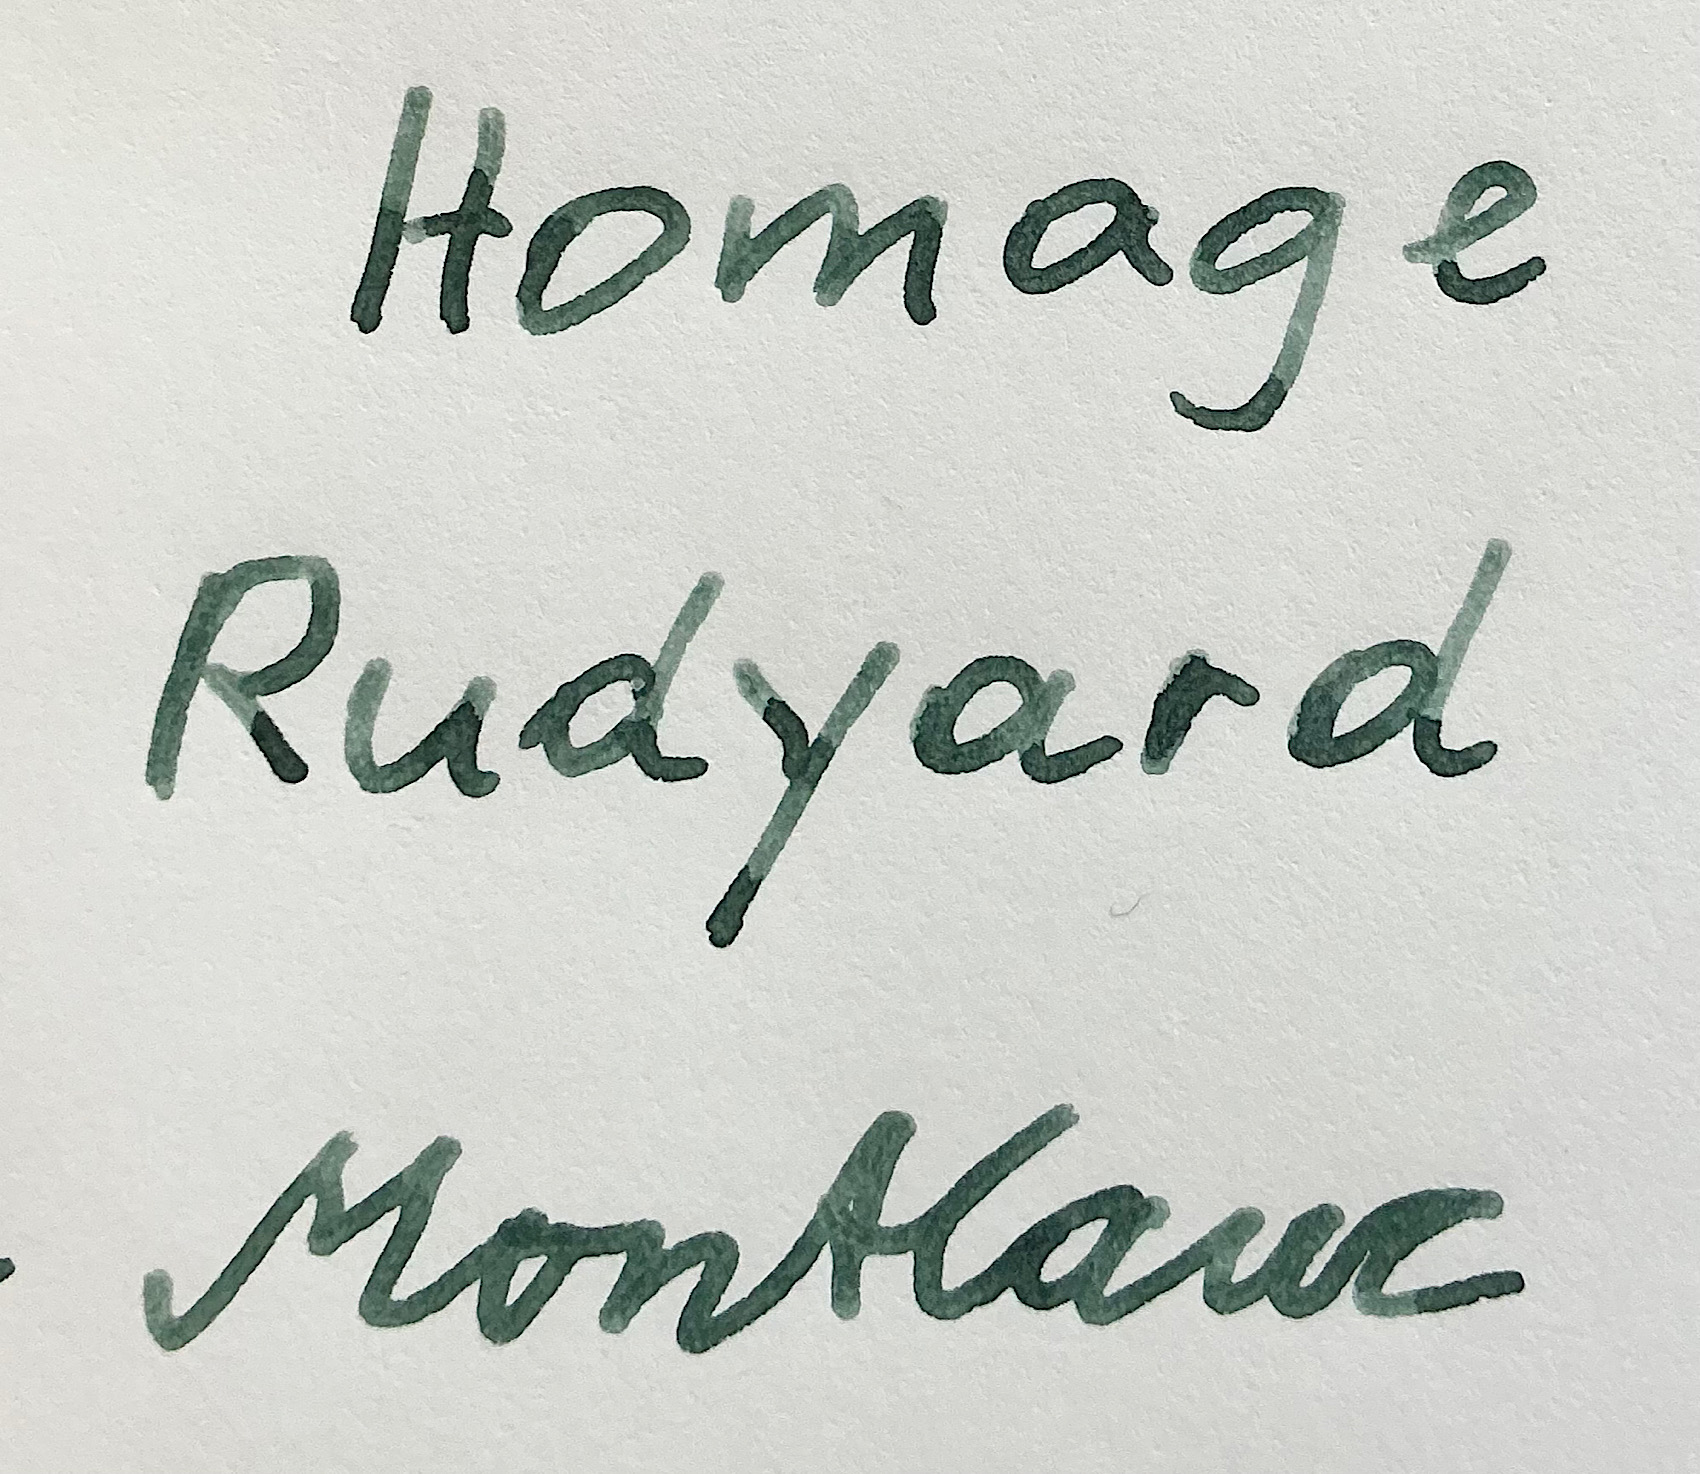 Homage
Rudyard
Montblanc